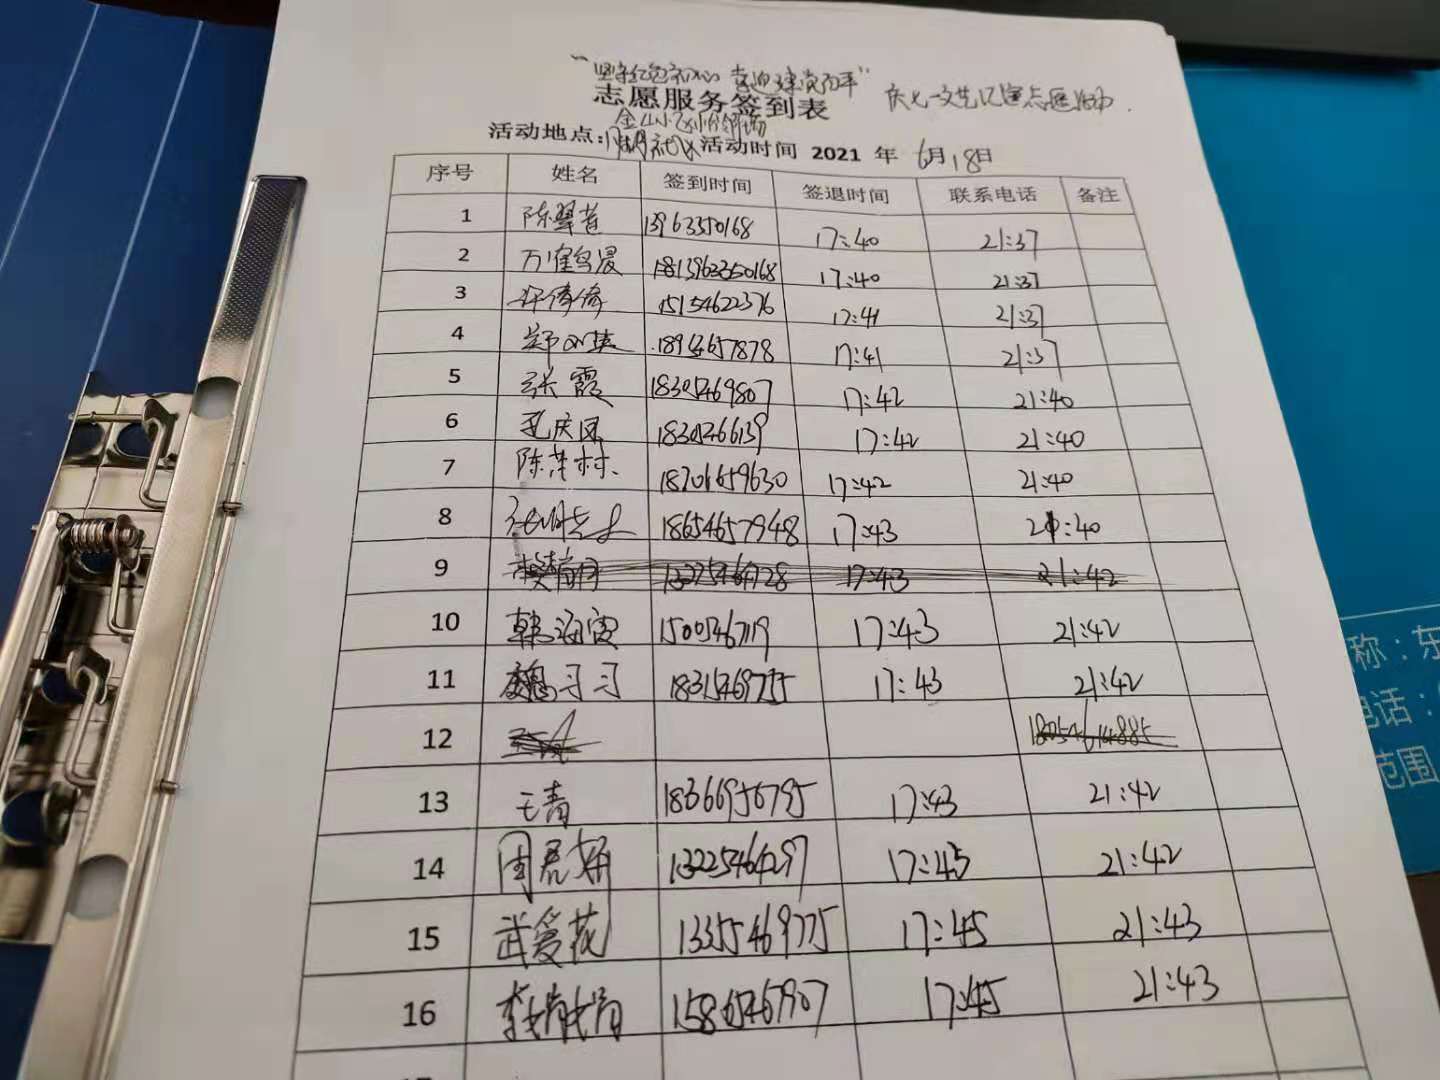 "坚守红色初心 喜迎建党百年" 庆七一文艺汇演志愿活动.
志愿服务签到表
活动地点: 活动时间 2021 年 6月18日
序号 姓名 签到时间 签退时间 联系电话 备注
1 陈翠苍 13963350168 17:40 21:37
2 1813963350168 17:40 21:37
3 许倩倩 15154622376 17:41 21:37
4 18954657878 17:41 21:37
5 张霞 18305469807 17:42 21:40
6 孔庆凤 1830566139 17:42 21:40
7 陈茂林 18706659630 17:42 21:40
8 18654657948 17:43 21:40
9 17:43 21:42
10 韩海霞 15005467119 17:43 21:42
11 魏习习 18315469775 17:43 21:42
12
13 王青 18366956795 17:43 21:42
14 周君妍 13225464297 17:45 21:42
15 武爱花 13355469775 17:45 21:43
16 李娟娟 15865467907 17:45 21:43
称：东
电话：
范围